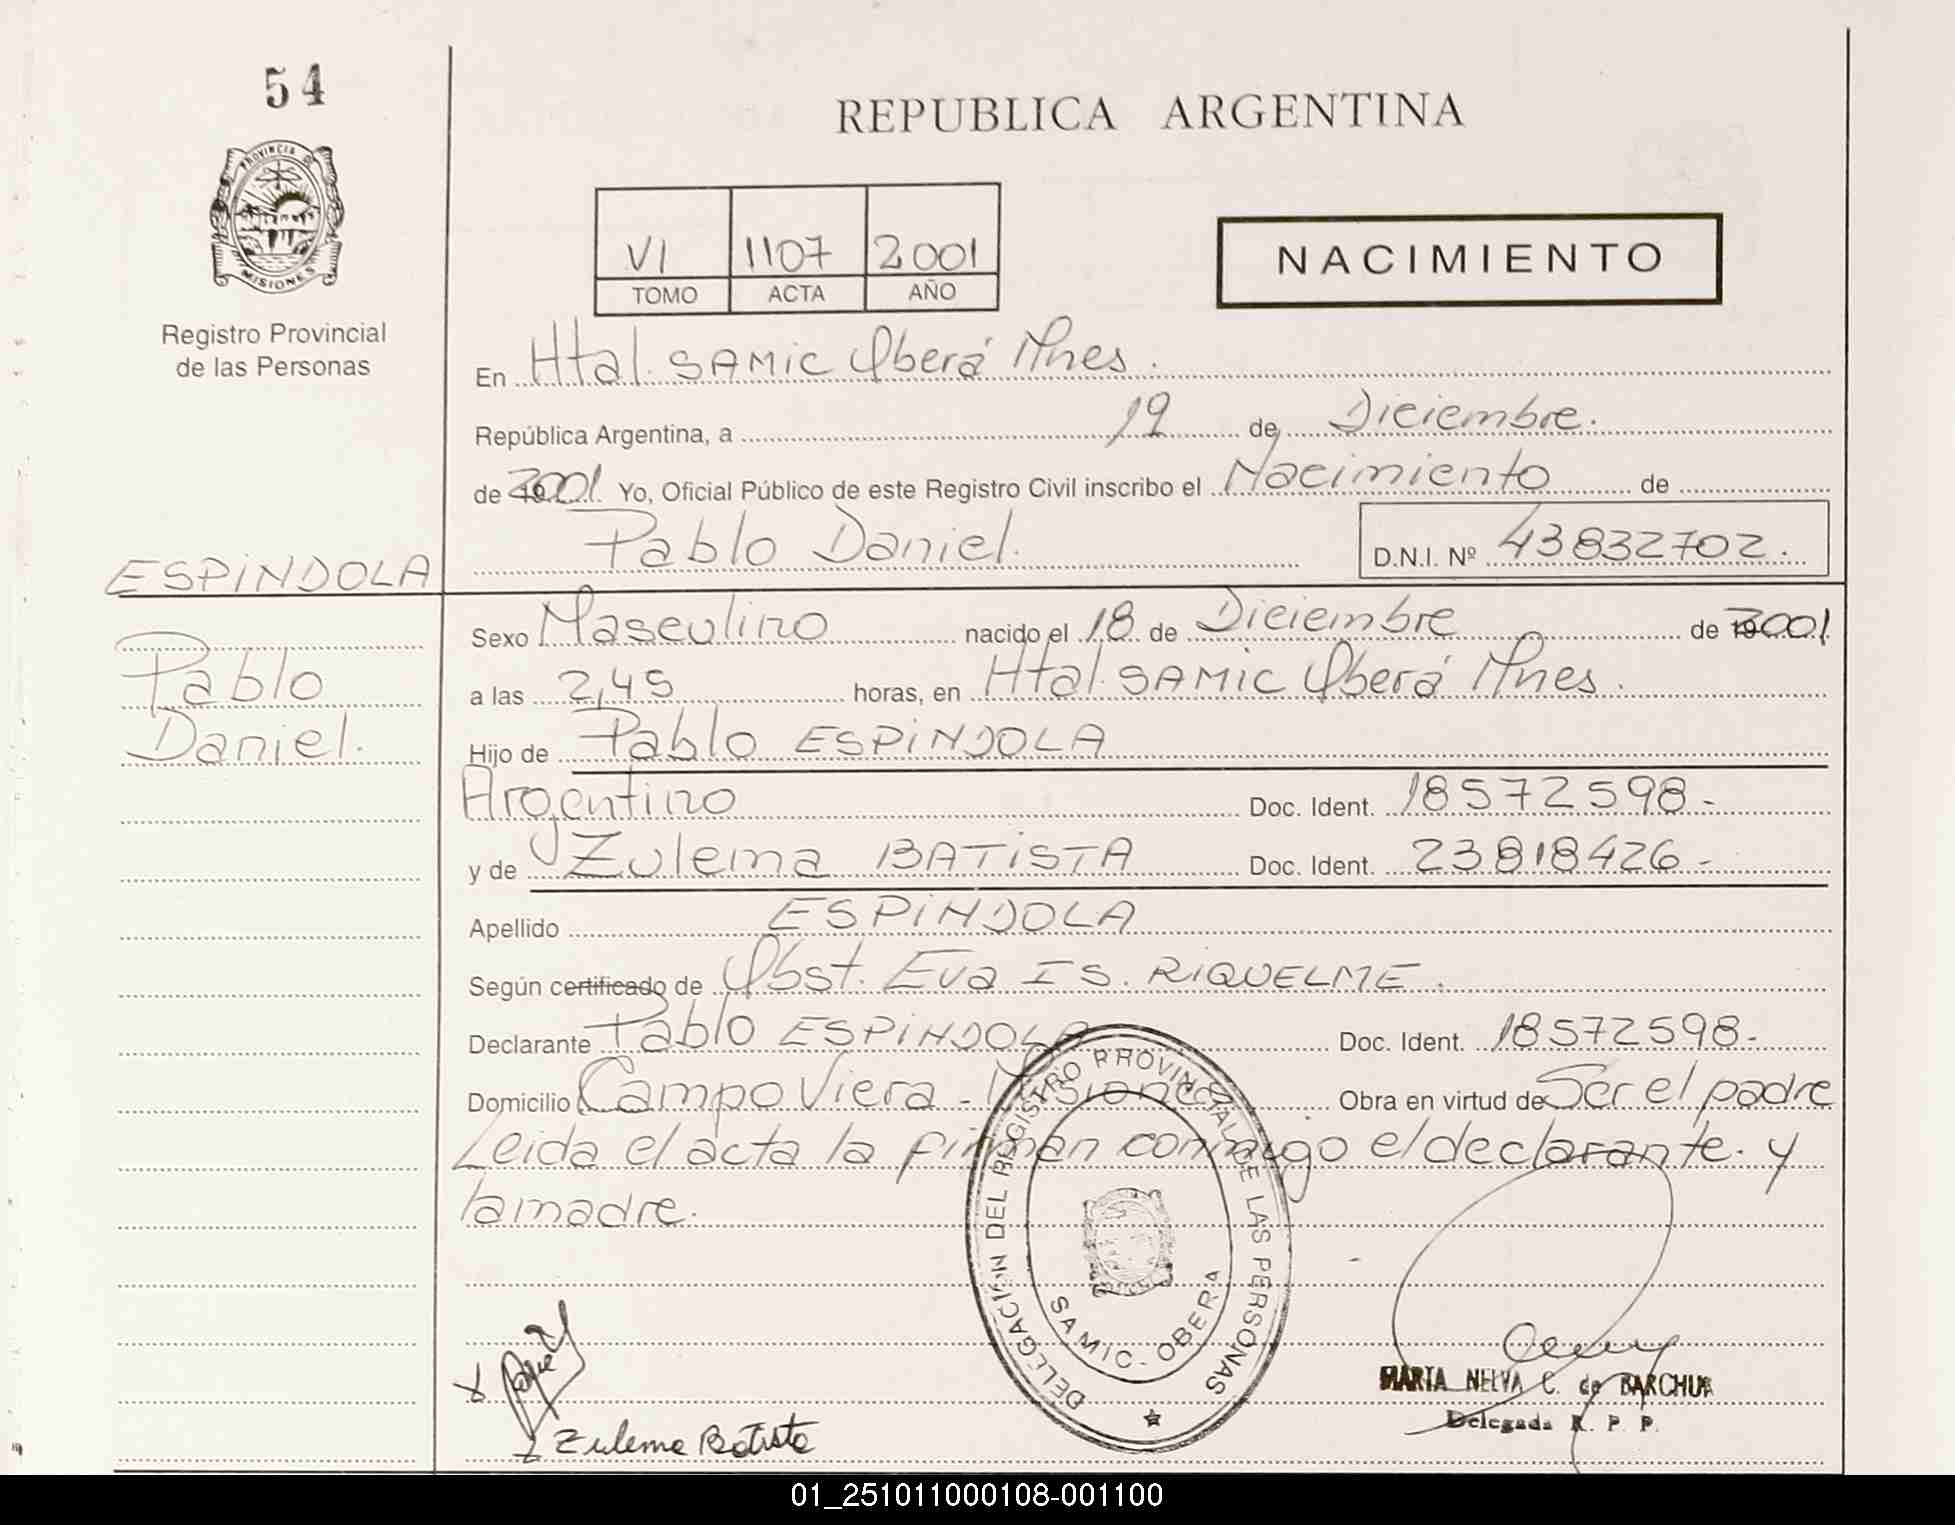 54
REPUBLICA ARGENTINA
PROVINCIA DE
MISIONES
Registro Provincial
de las Personas
VI 1107 2001
TOMO ACTA AÑO
NACIMIENTO
En Htal. SAMIC Oberá Mnes.
República Argentina, a 19 de Diciembre.
de 2001 Yo, Oficial Público de este Registro Civil inscribo el Nacimiento de
Pablo Daniel. D.N.I. Nº 43832702.
ESPINDOLA
Pablo
Daniel.
Sexo Masculino nacido el 18 de Diciembre de 2001
a las 2,45 horas, en Htal. SAMIC Oberá Mnes.
Hijo de Pablo ESPINDOLA
Argentino Doc. Ident. 18572598.-
y de Zulema BATISTA Doc. Ident. 23818426.-
Apellido ESPINDOLA
Según certificado de Obst. Eva IS. RIQUELME.
Declarante Pablo ESPINDOLA Doc. Ident. 18572598.-
Domicilio Campo Viera - Misiones Obra en virtud de Ser el padre
Leida el acta la firman conmigo el declarante. y
la madre.
DELEGACIÓN DEL REGISTRO PROVINCIAL DE LAS PERSONAS
SAMIC - OBERA
MARIA NELVA C. de BARCHUK
Delegada R. P. P.
Zulema Batista
01_251011000108-001100